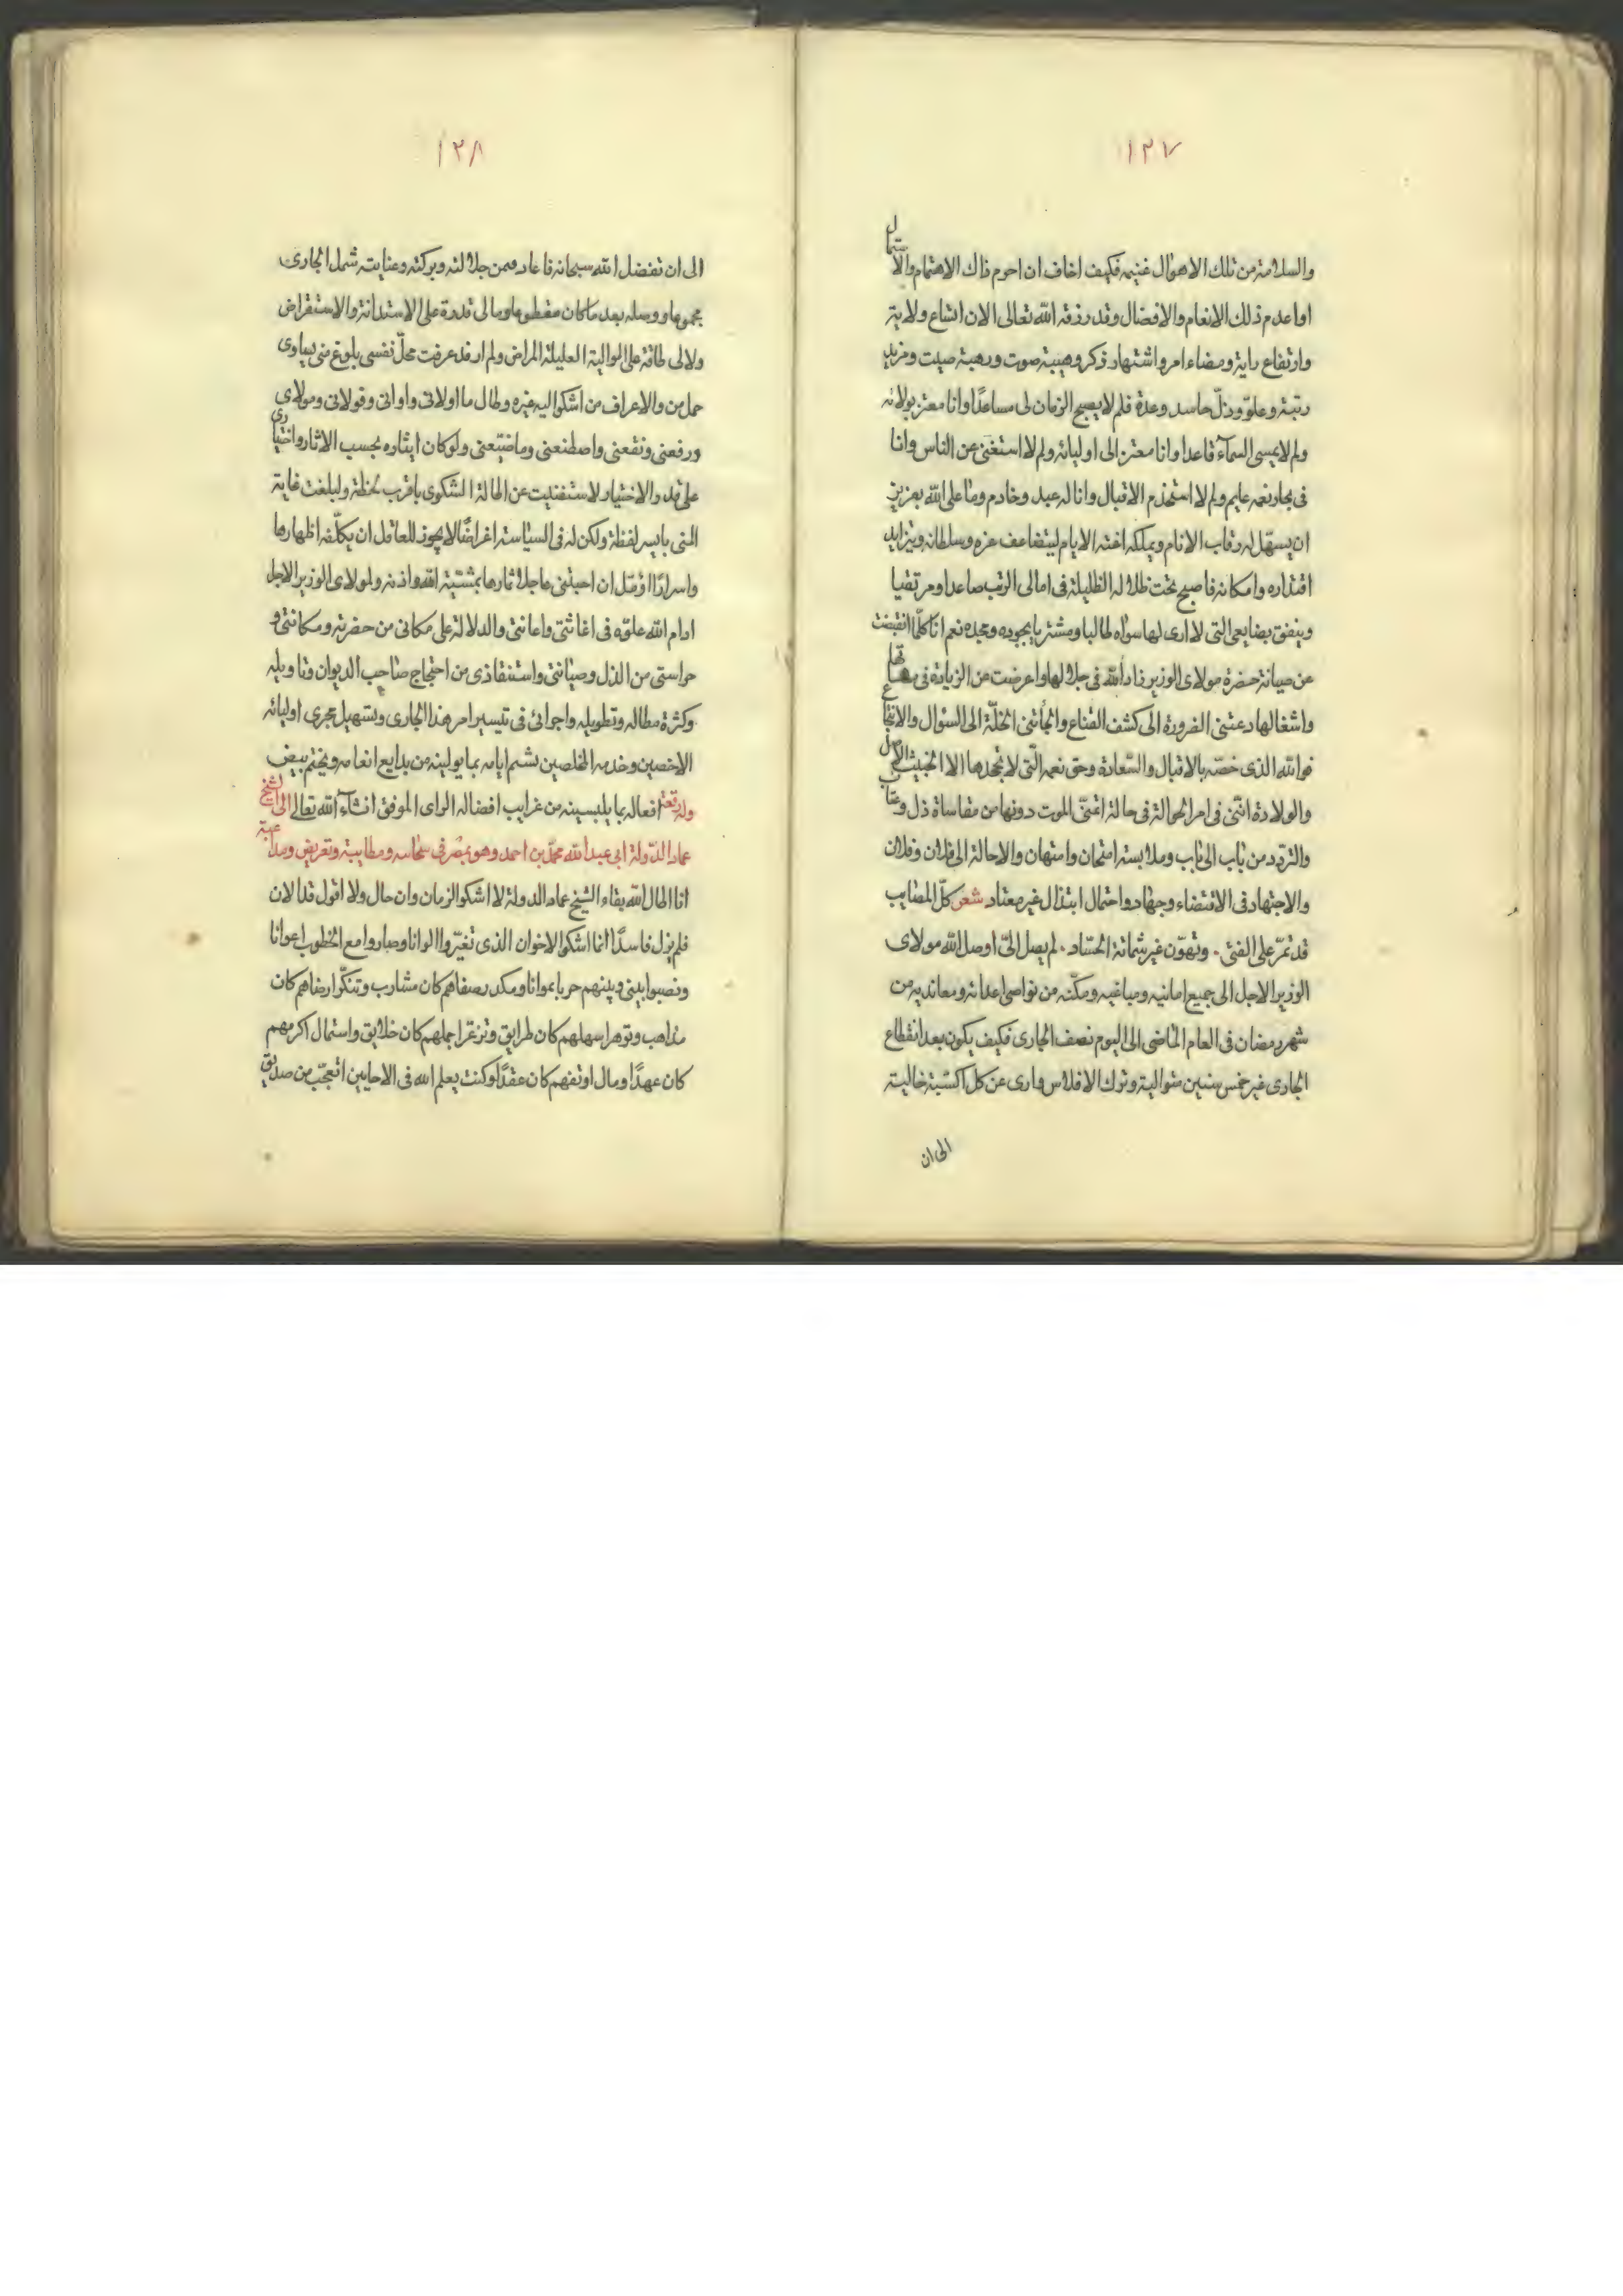 ١٢٧
والسلامة من تلك الاهوال غنيمه فكيف اخاف ان احرم ذاك الاهتمام والاشتمال
او اعدم ذلك الانعام والافضال وقد رزقه الله تعالى الان اتساع ولاية
وارتفاع راية ومضاء امر واشتهار ذكر وهيبة صوت ورهبة صيت ومزيد
رتبة وعلوّ وذلّ حاسد وعدة فلم لا يصبح الزمان لى مساعدًا وانا معتز بولائه
ولم لا يمسى السمآء قاعدا وانا معتز الى اوليائه ولم لا استغنى عن الناس وانا
فى بحار نعمه عايم ولم لا استخدم الاقبال وانا له عبد وخادم وما على الله بعزيز
ان يسهّل له رقاب الانام ويملكه اعنّه الايام ليتضاعف عزه وسلطانه ويتزايد
اقتداره وامكانه فاصبح تحت ظلاله الظليلة فى امالى الرتب صاعدا ومرتقيا
وينفق بضايعى التى لا ارى لها سواه طالبا ومشتريا بجوده ومجده نعم انا كلّما انقبضت
عن صيانة حضرة مولاى الوزير زاد الله فى جلالها واعرضت عن الزيادة فى مهماتها
واشغالها دعتنى الضرورة الى كشف القناع والجأتنى الخلّة الى السئوال والانتجاع
فوالله الذى خصّه بالاقبال والسّعادة وحق نعمه الّتى لا يجحدها الا الخبيث الاصل
والولادة انّنى فى امر الحوالة فى حالة اتمنّى الموت دونها من مقاساة ذل وعتاب
والتردّد من باب الى باب وملابسة امتحان وامتهان والاحالة الى فلان وفلان
والاجتهاد فى الاقتضاء وجهاد واحتمال ابتذال غير معتاد شعر كلّ المصايب
قد تمرّ على الفتى ٠ وتهوّن غير شماتة الحسّاد ٠ لم يصل الىّ اوصل الله مولاى
الوزير الاجل الى جميع امانيه ومباغيه ومكّنه من نواصى اعدائه ومعانديه من
شهر رمضان فى العام الماضى الى اليوم نصف الجارى فكيف يكون بعد انقطاع
الجارى غير خمس سنين متوالية وترك الافلاس وارى عن كل اكسبة خالية
الى ان
١٢٨
الى ان تفضل الله سبحانه فاعاد فمن جلالته وبركته وعنايته شمل الجارى
مجموعا ووصله بعد ما كان مقطوعا وما لى قدرة على الاستدانة والاستقراض
ولا لى طاقة على الوالية العليلة المراض ولم ار قد عرفت محلّ نفسى بلوغ منى يساوى
حمل من والاعراف من اشكوا اليه غيره وطال ما اولانى واوانى وقولانى ومولاى
ورفعنى ونفعنى واصطنعنى وما ضيّعنى ولو كان ايثاره بحسب الاثار واختيارى
على قدر والاختيار لاستغنيت عن اطالة الشكوى باقرب لحظة ولبلغت غاية
المنى بايسر لفظة ولكن له فى السياسة اغراضًا لا يجوز للعاقل ان يكلّفه اظهارها
واسرارًا اؤمّل ان احبتنى عاجلا ثمارها بمشيّة الله واذنه ولمولاى الوزير الاجل
ادام الله علوّه فى اغاثتى واعانتى والدلالة على مكانى من حضرته ومكانتى و
حراستى من الذل وصيانتى واستنقاذى من احتجاج صاحب الديوان وتاويله
وكثرة مطاله وتطويله واجرائى فى تيسير امر هذا الجارى وتسهيل مجرى اوليائه
الاخصين وخدمه المخلصين بشيم ايامه بما يولينه من بدايع انعامه ويختم ببيض
افعاله بما يلبسينه من غرايب افضاله الراى الموفق انشآء الله تعالى وله رقعة الى الشيخ
عماد الدّولة ابى عبد الله محمّد بن احمد وهو بمصر فى سحاسه ومطايبة وتعريض ومداعبة
انا اطال الله بقاء الشيخ عماد الدولة لا اشكو الزمان وان حال ولا اقول قد الان
فلم يزل فاسدًا انما اشكو الاخوان الذى تغيّروا الوانا وصاروا مع الخطوب اعوانا
ونصبوا بينى وبينهم حربا عوانا ومكدر صفاهم كان مشارب وتنكّر ارضاهم كان
مذاهب وتوعر اسهلهم كان طرايق وتزعر اجملهم كان خلايق واستمال اكرمهم
كان عهدًا ومال اوثقهم كان عقدًا وكنت يعلم الله فى الاحايين اتعجّب من صديق